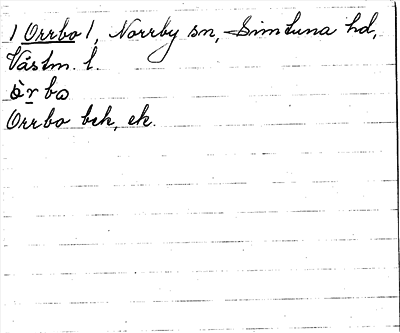 / Orrbo /, Norrby sn, Simtuna hd,
Västm. l.
òr bɷ
Orrbo bek, ek.